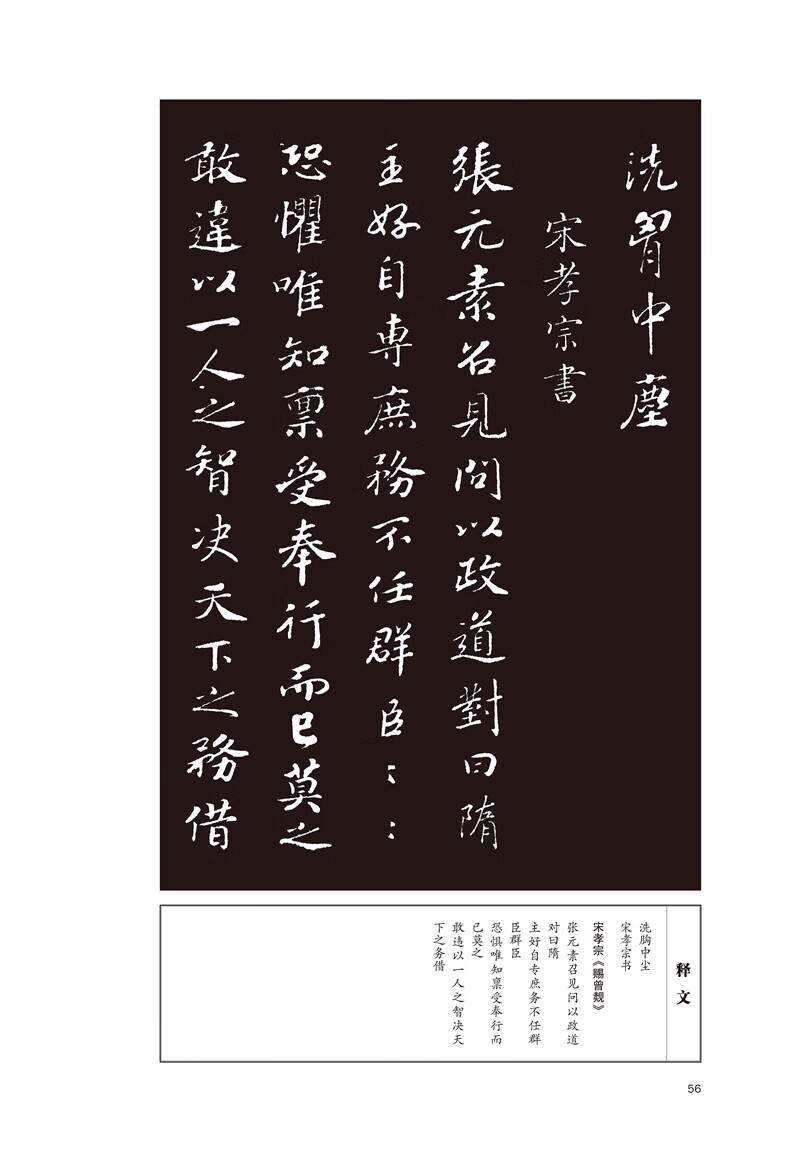 洗胷中塵
宋孝宗書
張元素召見問以政道對曰隋
主好自専庶務不任群臣〻〻
恐懼唯知禀受奉行而已莫之
敢違以一人之智决天下之務借
释文
洗胸中尘
宋孝宗书
宋孝宗《赐曾觌》
张元素召见问以政道
对曰隋
主好自专庶务不任群
臣群臣
恐惧唯知禀受奉行而
已莫之
敢违以一人之智决天
下之务借
56